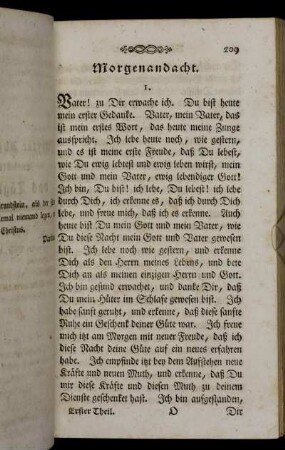 209
Morgenandacht.
1.
Vater! zu Dir erwache ich. Du bist heute
mein erster Gedanke. Vater, mein Vater, das
ist mein erstes Wort, das heute meine Zunge
ausspricht. Ich lebe heute noch, wie gestern,
und es ist meine erste Freude, daß Du lebest,
wie Du ewig lebtest und ewig leben wirst, mein
Gott und mein Vater, ewig lebendiger Gott!
Ich bin, Du bist! ich lebe, Du lebest! ich lebe
durch Dich, ich erkenne es, daß ich durch Dich
lebe, und freue mich, daß ich es erkenne. Auch
heute bist Du mein Gott und mein Vater, wie
Du diese Nacht mein Gott und Vater gewesen
bist. Ich lebe noch wie gestern, und erkenne
Dich als den Herrn meines Lebens, und bete
Dich an als meinen einzigen Herrn und Gott.
Ich bin gesund erwachet, und danke Dir, daß
Du mein Hüter im Schlafe gewesen bist. Ich
habe sanft geruht, und erkenne, daß diese sanfte
Ruhe ein Geschenk deiner Güte war. Ich freue
mich itzt am Morgen mit neuer Freude, daß ich
diese Nacht deine Güte auf ein neues erfahren
habe. Ich empfinde itzt bey dem Aufstehen neue
Kräfte und neuen Muth, und erkenne, daß Du
mir diese Kräfte und diesen Muth zu deinem
Dienste geschenket hast. Ich bin aufgestanden,
Erster Theil. O Dir
rundstein, als der ist
emal niemand legt,
Christus.